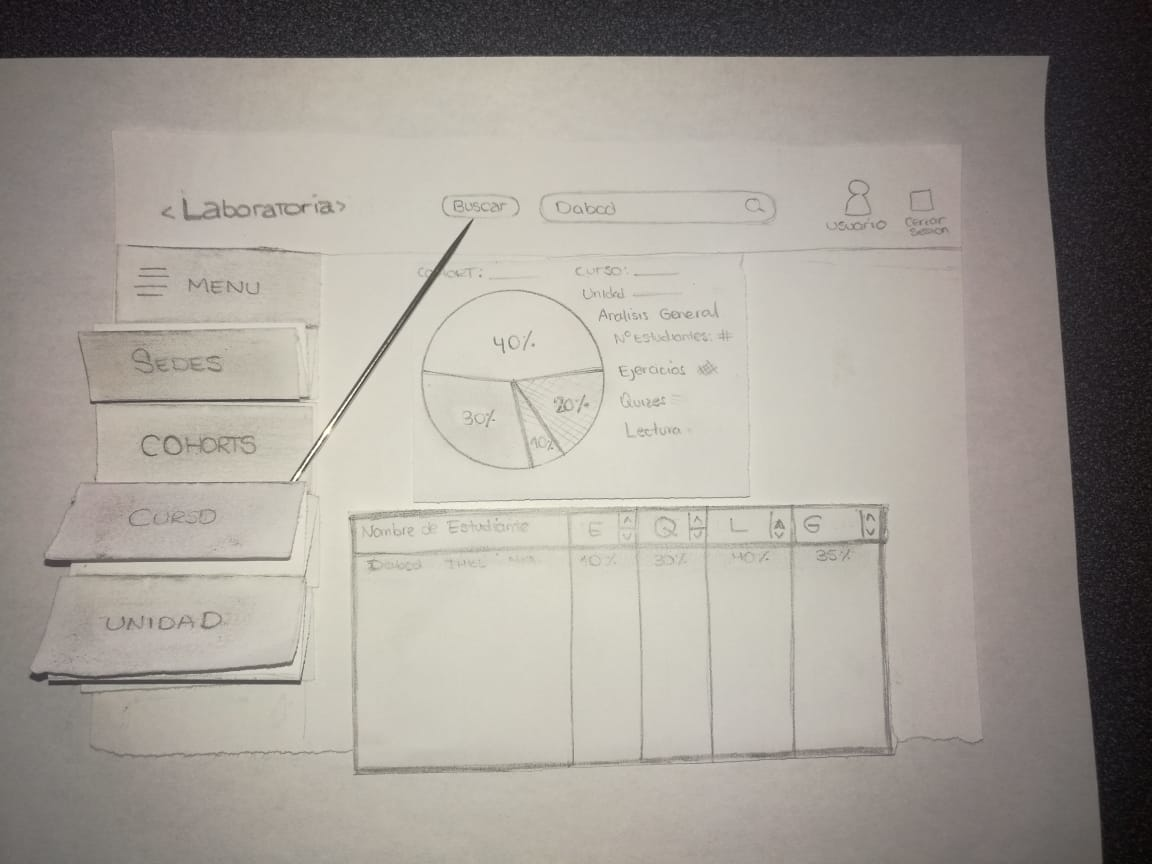 <Laboratoria>
Buscar
Dabcd
USUARIO
Cerrar
Sesion
MENU
SEDES
COHORTS
CURSO
UNIDAD
COHORT:
CURSO:
Unidad
Analisis General
N° Estudiantes: #
Ejercicios
Quizes
Lectura
40%
30%
20%
10%
Nombre de Estudiante E Q L G
Dabcd 40% 35%